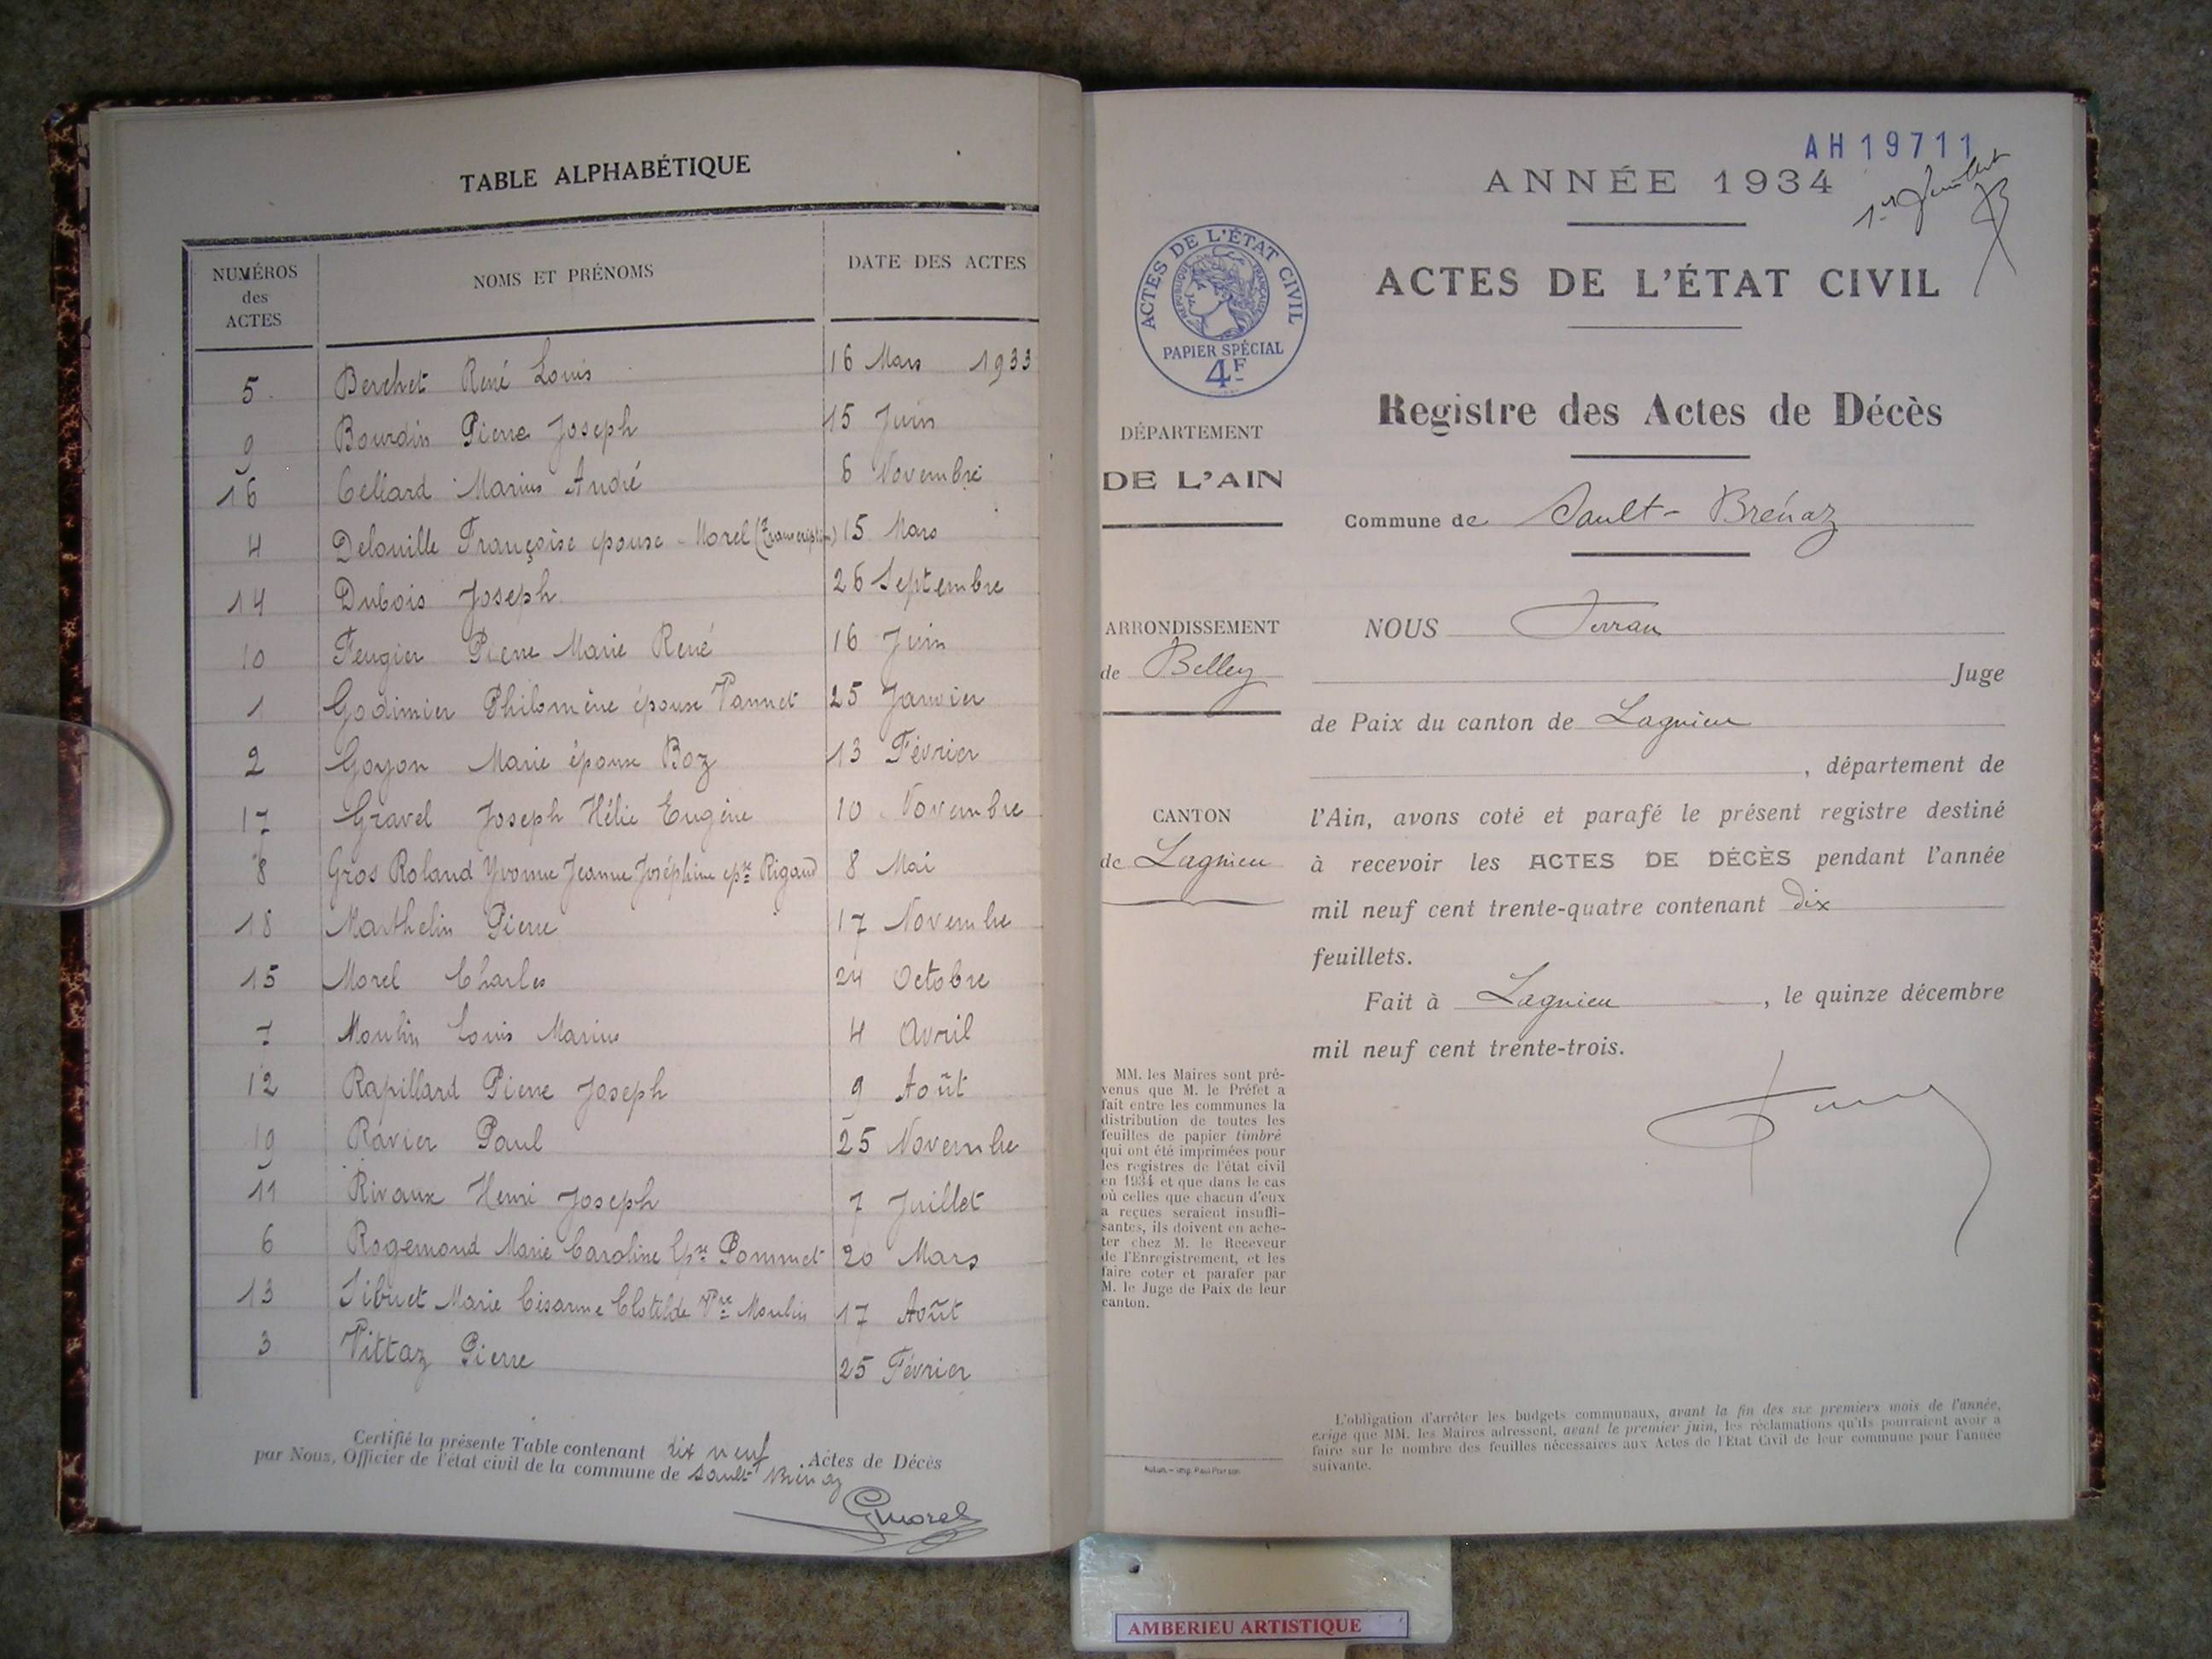 TABLE ALPHABÉTIQUE
NUMÉROS des ACTES NOMS ET PRÉNOMS DATE DES ACTES
5 Berchet René Louis 16 Mars 1933
9 Bourdin Pierre Joseph 15 Juin
16 Celiard Marius André 6 Novembre
4 Delouille Françoise épouse Morel (Transcription) 15 Mars
14 Dubois Joseph 26 Septembre
10 Feugier Pierre Marie René 16 Juin
1 Godimier Philomène épouse Vannet 25 Janvier
2 Goyon Marie épouse Boz 13 Février
17 Gravel Joseph Hélie Eugène 10 Novembre
8 Gros Roland Yvonne Jeanne Joséphine epse Rigaud 8 Mai
18 Marthelin Pierre 17 Novembre
15 Morel Charles 24 Octobre
7 Moulin Louis Marius 4 Avril
12 Rapillard Pierre Joseph 9 Août
19 Ravier Paul 25 Novembre
11 Rivaux Henri Joseph 7 Juillet
6 Rogemond Marie Caroline Epse Pommet 20 Mars
13 Sibuet Marie Césarine Clotilde Vve Moulin 17 Août
3 Vittaz Pierre 25 Février
Certifié la présente Table contenant dix neuf Actes de Décès
par Nous, Officier de l'état civil de la commune de Sault Brénaz
GMorel
AH19711
ANNÉE 1934
1er Juillet
ACTES DE L'ÉTAT CIVIL
RÉPUBLIQUE FRANÇAISE
PAPIER SPÉCIAL
4F
ACTES DE L'ÉTAT CIVIL
Registre des Actes de Décès
DÉPARTEMENT
DE L'AIN
Commune de Sault-Brénaz
ARRONDISSEMENT
de Belley
NOUS Ferran
Juge
de Paix du canton de Lagnieu
, département de
CANTON
de Lagnieu
l'Ain, avons coté et parafé le présent registre destiné
à recevoir les ACTES DE DÉCÈS pendant l'année
mil neuf cent trente-quatre contenant dix
feuillets.
Fait à Lagnieu, le quinze décembre
mil neuf cent trente-trois.
MM. les Maires sont pré-
venus que M. le Préfet a
fait entre les communes la
distribution de toutes les
feuilles de papier timbré
qui ont été imprimées pour
les registres de l'état civil
en 1934 et que dans le cas
où celles que chacun d'eux
a reçues seraient insuffi-
santes, ils doivent en ache-
ter chez M. le Receveur
de l'Enregistrement, et les
faire coter et parafer par
M. le Juge de Paix de leur
canton.
L'obligation d'arrêter les budgets communaux, avant la fin des six premiers mois de l'année,
exige que MM. les Maires adressent, avant le premier juin, les réclamations qu'ils pourraient avoir à
faire sur le nombre des feuilles nécessaires aux Actes de l'Etat Civil de leur commune pour l'année
suivante.
Autun. — Imp. Paul Marson
AMBERIEU ARTISTIQUE